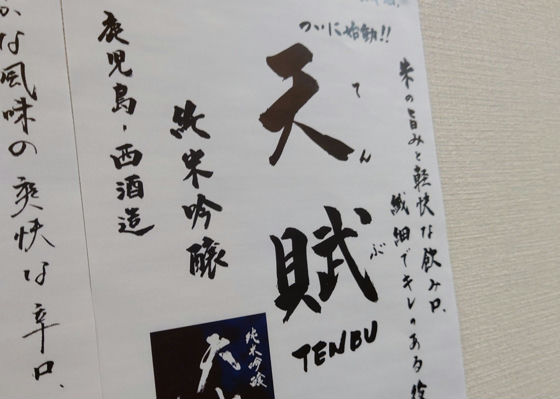 米の旨みと軽快な飲み口、
繊細でキレのある後
ついに始動!!
天賦
てんぶ
TENBU
純米吟醸
鹿児島・西酒造
純米吟醸
天
かな風味の爽快な辛口、